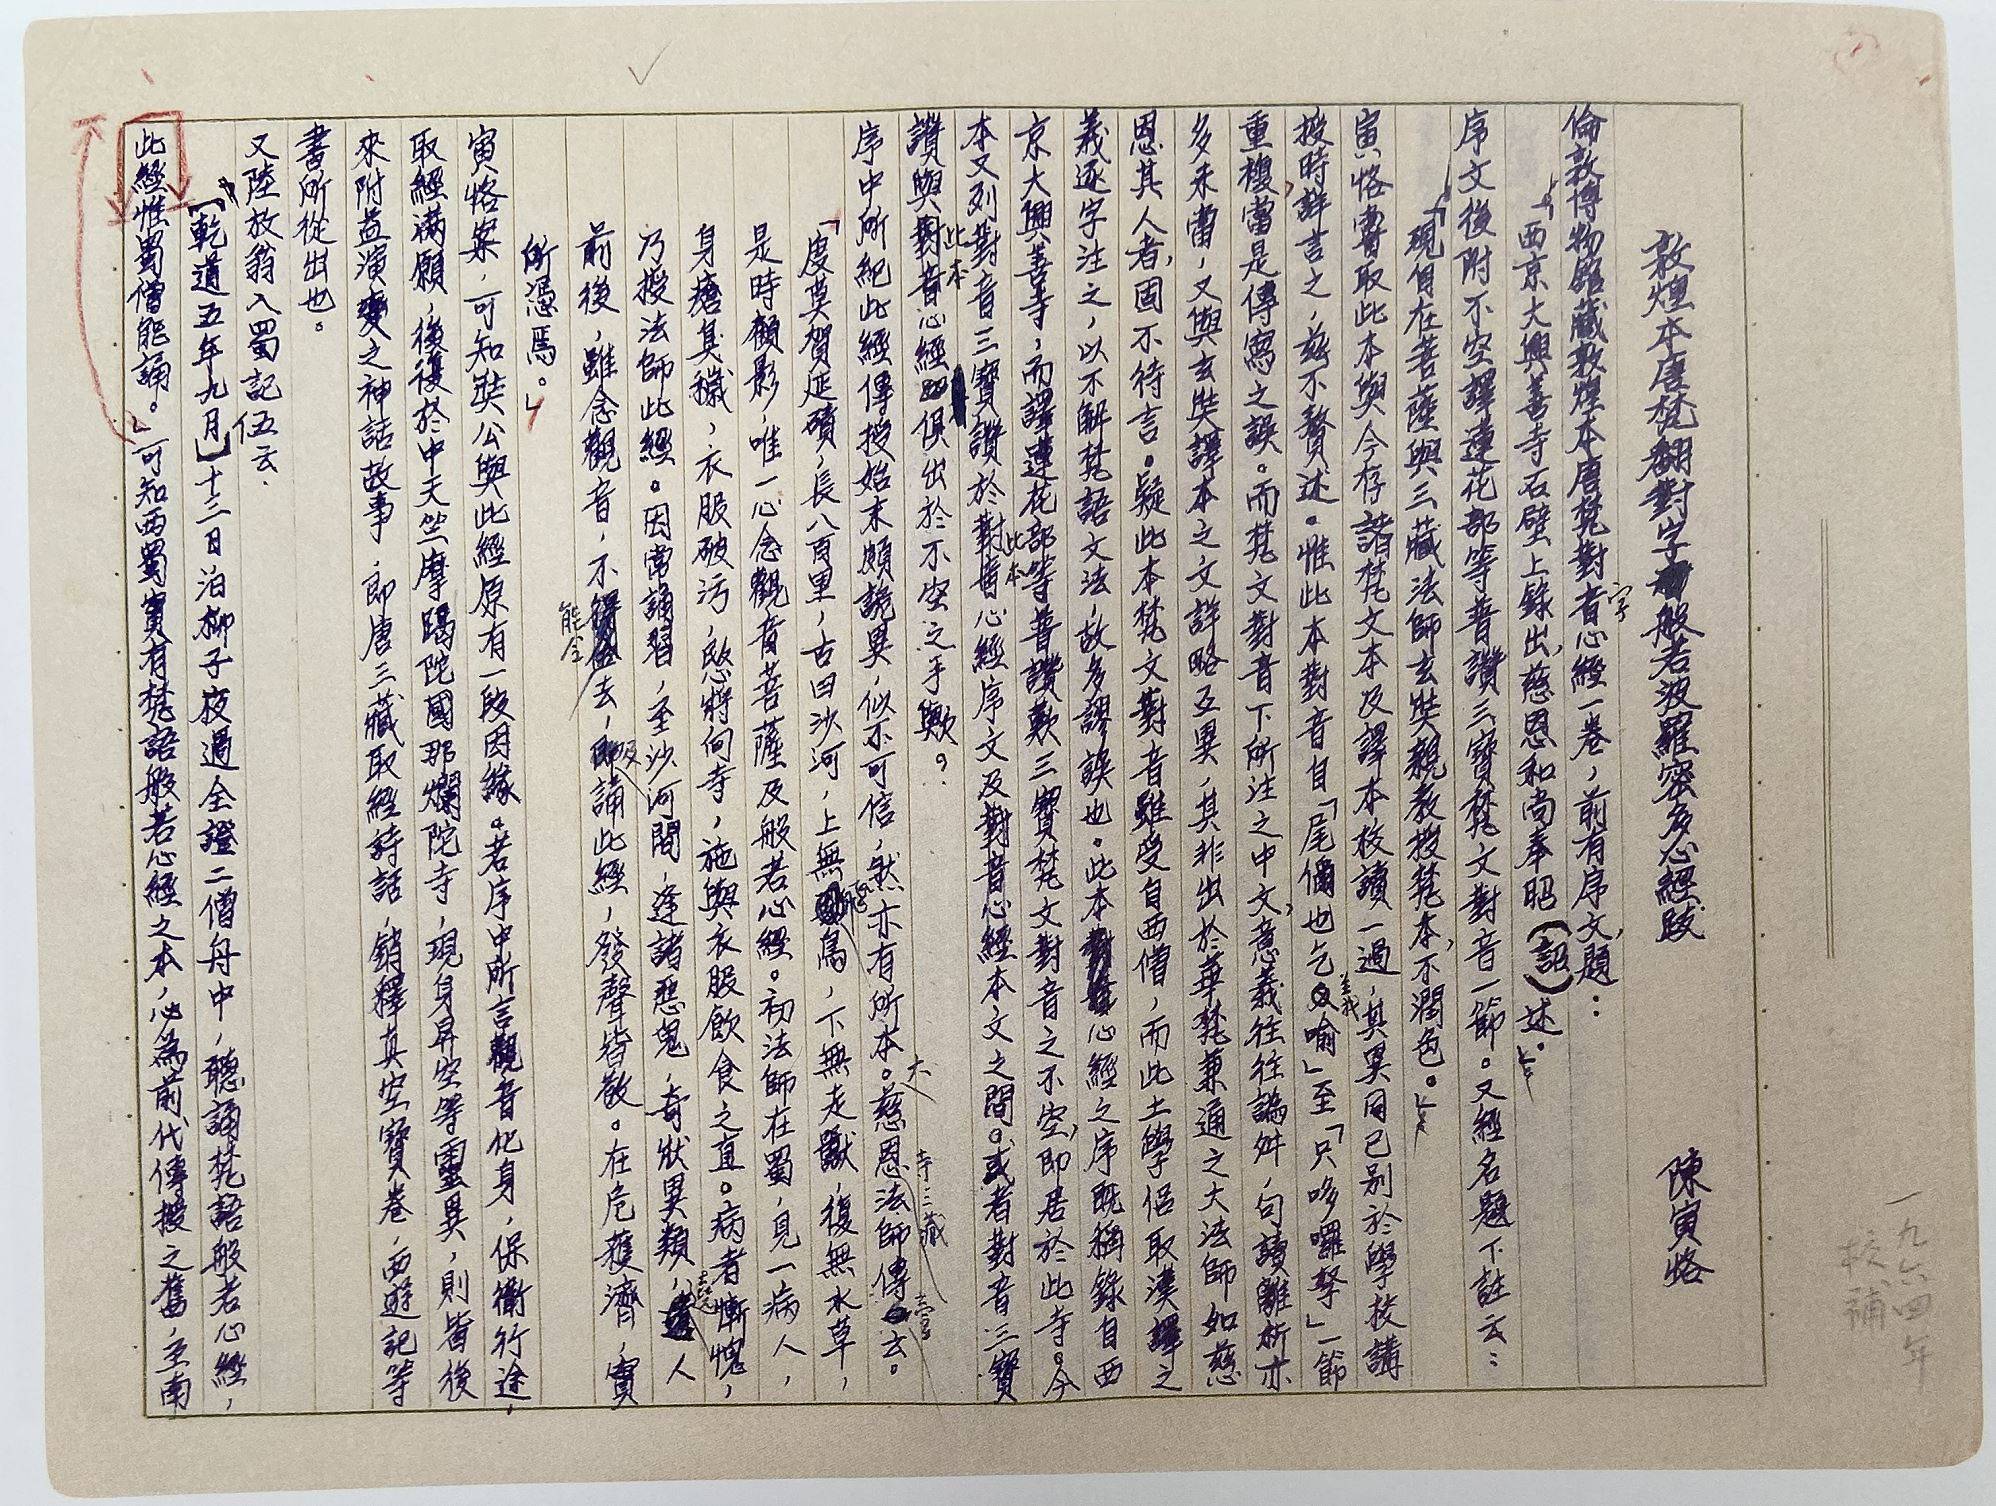 敦煌本唐梵翻對字般若波羅密多心經跋
陳寅恪
一九六四年
校補
倫敦博物館藏敦煌本唐梵對字音心經一卷，前有序文，題：
「西京大興善寺石壁上錄出，慈恩和尚奉昭（詔）述。」
序文後附不空譯蓮花部等普讚三寶梵文對音一節。又經名題下註云：
「現自在菩薩與三藏法師玄奘親教授梵本，不潤色。」
寅恪嘗取此本與今存諸梵文本及譯本校讀一過，其異同已別於學校講
授時詳言之，茲不贅述。惟此本對音自「尾儞也乞叉喻」至「只哆囉孥」一節
重複，當是傳寫之誤。而梵文對音下所注之中文，意義往往譌舛，句讀離析亦
多未當，又與玄奘譯本之文詳略互異，其非出於華梵兼通之大法師如慈
恩其人者，固不待言。疑此本梵文對音雖受自西僧，而此土學侶取漢譯之
義逐字注之，以不解梵語文法，故多謬誤也。此本心經之序既稱錄自西
京大興善寺，而譯蓮花部等普讚歎三寶梵文對音之不空，即居於此寺。今
本又列對音三寶讚於此本對音心經序文及對音心經本文之間。或者對音三寶
讚與此本對音心經俱出於不空之手歟。
序中所紀此經傳授始末頗詭異，似不可信，然亦有所本。大慈恩寺三藏法師傳壹云。
「度莫賀延磧，長八百里，古曰沙河，上無飛鳥，下無走獸，復無水草，
是時顧影，唯一心念觀音菩薩及般若心經。初法師在蜀，見一病人，
身瘡臭穢，衣服破污，愍將向寺，施與衣服飲食之直。病者慚愧，
乃授法師此經。因常誦習，至沙河間，逢諸惡鬼，奇狀異類，遶人
前後，雖念觀音，不能令去，及誦此經，發聲皆散。在危獲濟，實
所憑焉。」
寅恪案，可知奘公與此經原有一段因緣。若序中所言觀音化身，保衛行途，
取經滿願，後復於中天竺摩竭陀國那爛陀寺，現身昇空等靈異，則皆後
來附益演變之神話故事，即唐三藏取經詩話，銷釋真空寶卷，西遊記等
書所從出也。
又陸放翁入蜀記伍云
「（乾道五年九月）十三日泊柳子夜過全證二僧舟中，聽誦梵語般若心經，
此經惟蜀僧能誦。」可知西蜀實有梵語般若心經之本，必為前代傳授之舊，至南